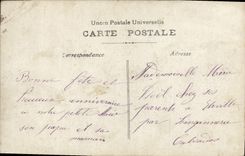 Union Postale Universelle
CARTE POSTALE
Correspondance
Adresse
Bonne fête et
heureux anniversaire
à notre petite
son papa et sa
maman
Mademoiselle
chez ses
parents à
par
Calvados